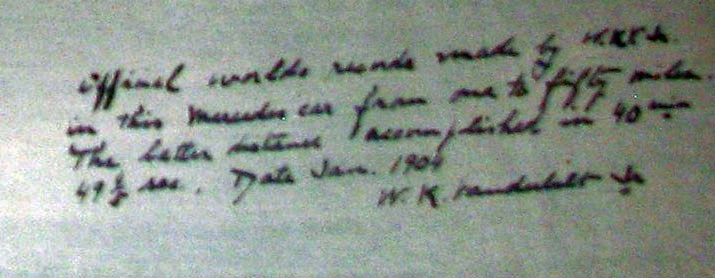 Official worlds records made by W.K.V. Jr.
in this Mercedes car from one to fifty miles.
The latter distance accomplished in 40 min
49 4/5 sec. Date Jan. 1904
W. K. Vanderbilt Jr